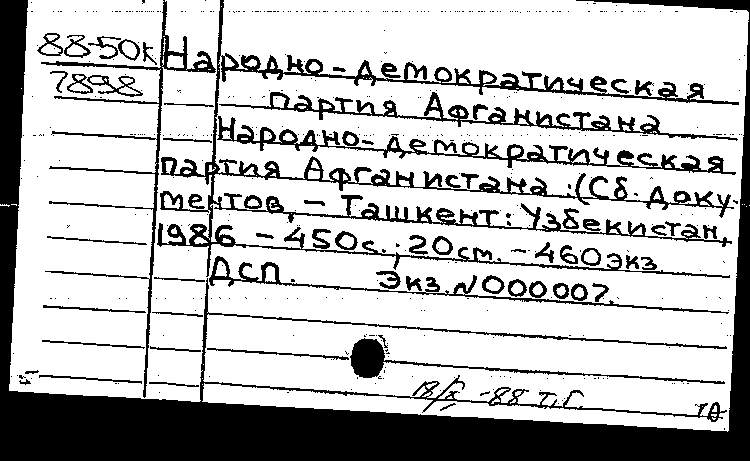 88-50к Народно-демократическая
7898 партия Афганистана
Народно-демократическая
партия Афганистана :(Сб. доку-
ментов, – Ташкент: Узбекистан,
1986. – 450с.; 20см. – 460экз.
ДСП. Экз.N000007.
18/X -88 Т.Г.